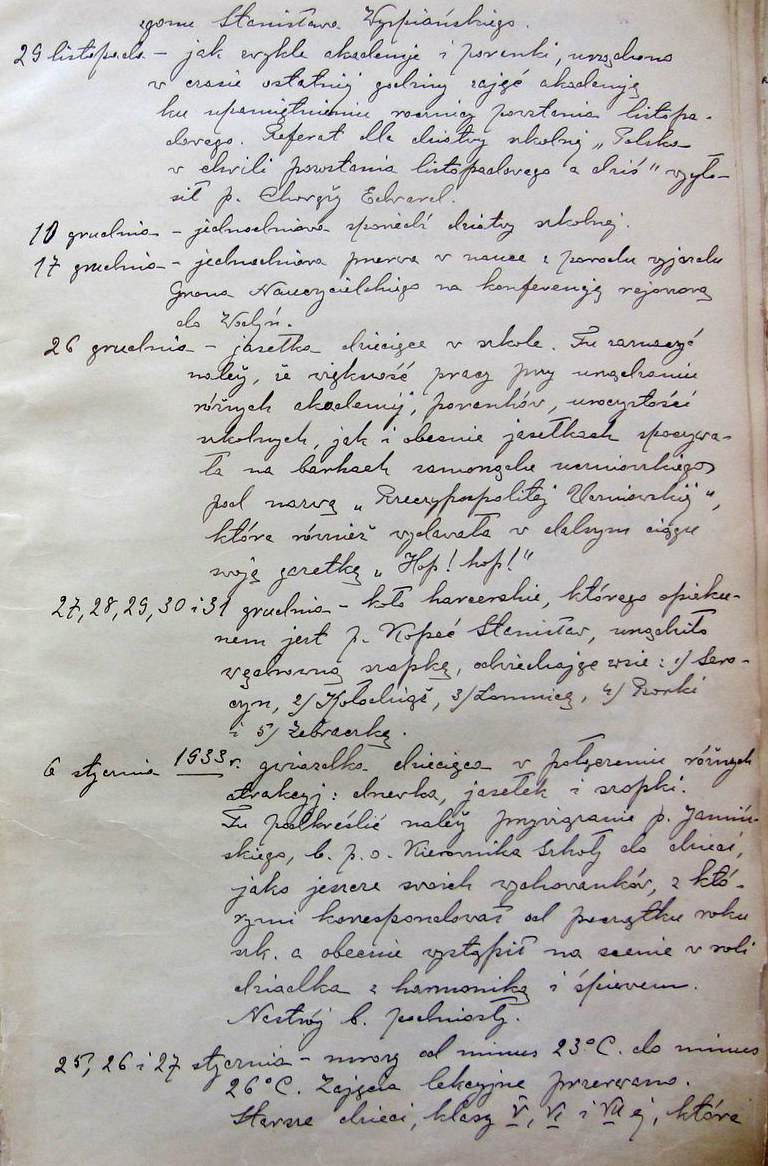 zgonu Stanisława Wyspiańskiego.
29 listopada – jak zwykle akademje i poranki, urządzono
w czasie ostatniej godziny zajęć akademję
ku upamiętnieniu rocznicy powstania listopa-
dowego. Referat dla dziatwy szkolnej „Polska
w chwili powstania listopadowego a dziś" wygło-
sił p. Chorąży Edward.
10 grudnia – jednodniowa spowiedź dziatwy szkolnej.
17 grudnia – jednodniowa przerwa w nauce z powodu wyjazdu
Grona Nauczycielskiego na konferencję rejonową
do Wodyń.
26 grudnia – jasełka dziecięce w szkole. Tu zaznaczyć
należy, że większość pracy przy urządzaniu
różnych akademij, poranków, uroczystości
szkolnych, jak i obecnie jasełkach spoczywa-
ła na barkach samorządu uczniowskiego
pod nazwą „Rzeczypospolitej Uczniowskiej",
która również wydawała w dalszym ciągu
swoją gazetkę „Hop! hop!"
27, 28, 29, 30 i 31 grudnia – koło harcerskie, którego opieku-
nem jest p. Kopeć Stanisław, urządziło
wędrowną szopkę, odwiedzając wsie: 1/ Sero-
czyn, 2/ Kołodziąż, 3/ Łomnicę, 4/ Borki
i 5/ Żebraczkę.
6 stycznia 1933 r. gwiazdka dziecięca w połączeniu różnych
atrakcyj: drzewka, jasełek i szopki.
Tu podkreślić należy przywiązanie p. Jamiń-
skiego, b. p. o. Kierownika Szkoły do dzieci,
jako jeszcze swoich wychowanków, z któ-
rymi korespondował od początku roku
szk. a obecnie wystąpił na scenie w roli
dziadka z harmonią i śpiewem.
Nastrój b. podniosły.
25, 26 i 27 stycznia – mrozy od minus 23°C. do minus
26°C. Zajęcia lekcyjne przerwano.
Starsze dzieci, klasy V, VI i VII ej, które